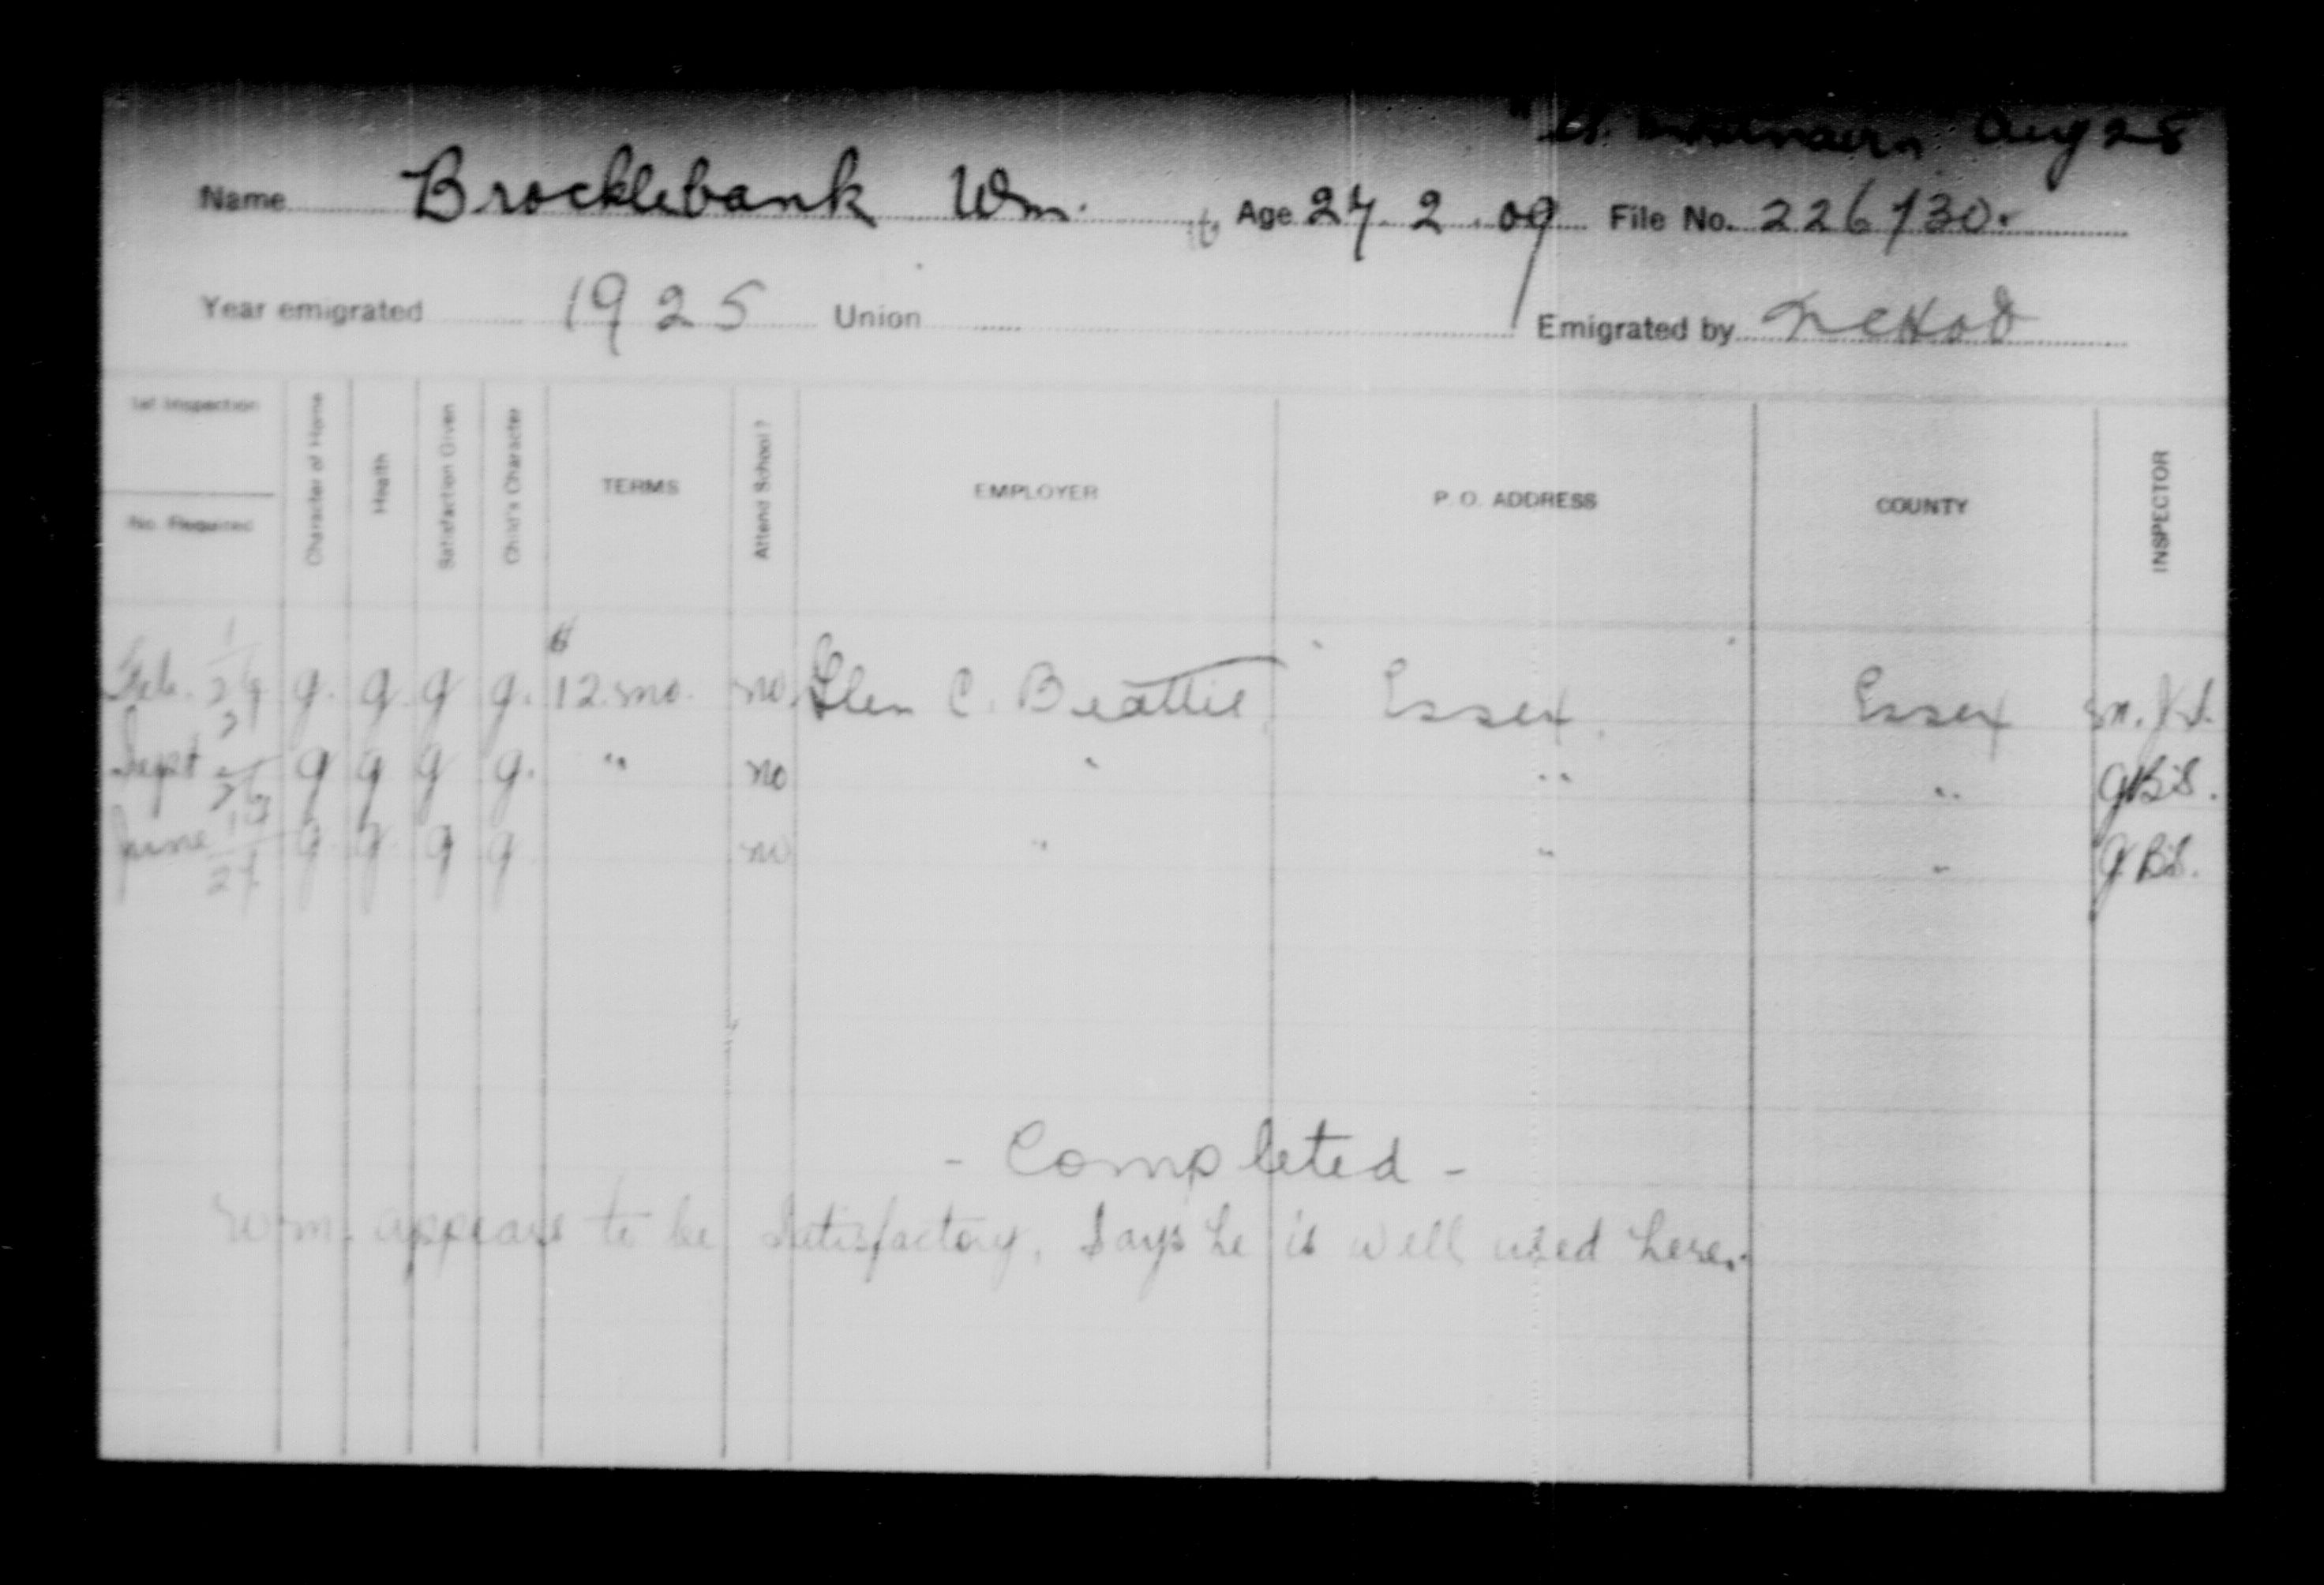 Aug 25
Name Brocklebank Wm. 16 Age 27.2.09 File No. 226730.
Year emigrated 1925 Union Emigrated by NCH&O
1st Inspection
No. Required
Character of Home
Health
Satisfaction Given
Child's Character
TERMS
Attend School?
EMPLOYER
P. O. ADDRESS
COUNTY
INSPECTOR
Feb. g. g g g. 12 mo. no. Glen C. Beattie Essex. Essex
Sept g g g g. " no " " " GBS.
June g g g g no " " " GBS.
- Completed -
Wm. appears to be satisfactory, says he is well used here.